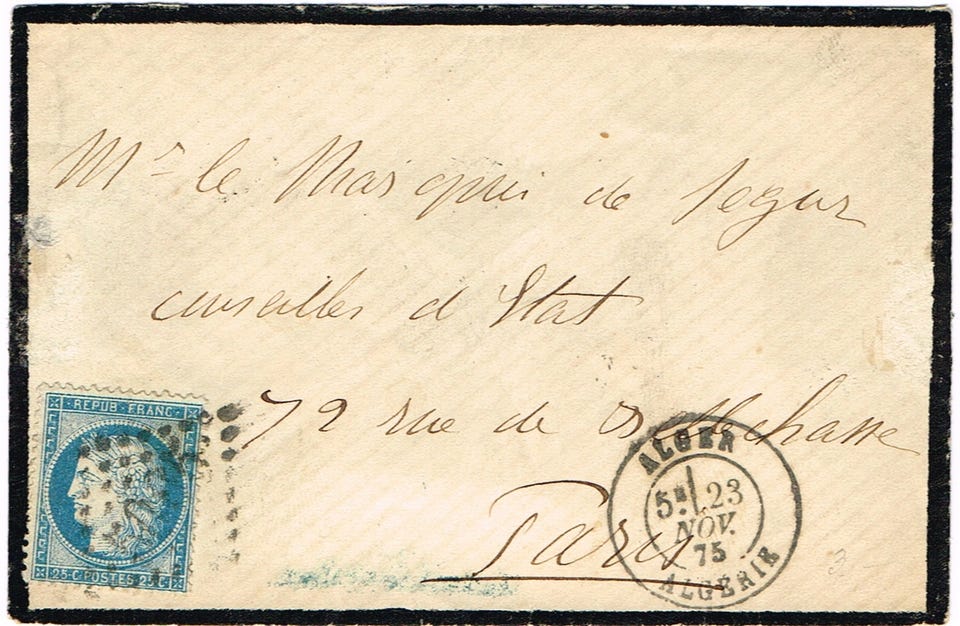 Mr le Marquis de Segur
conseiller d Etat
72 rue de Bellechasse
Paris
REPUB·FRANC·
25·C·POSTES·25·C·
ALGER
5E 23
NOV.
75
ALGERIE
3